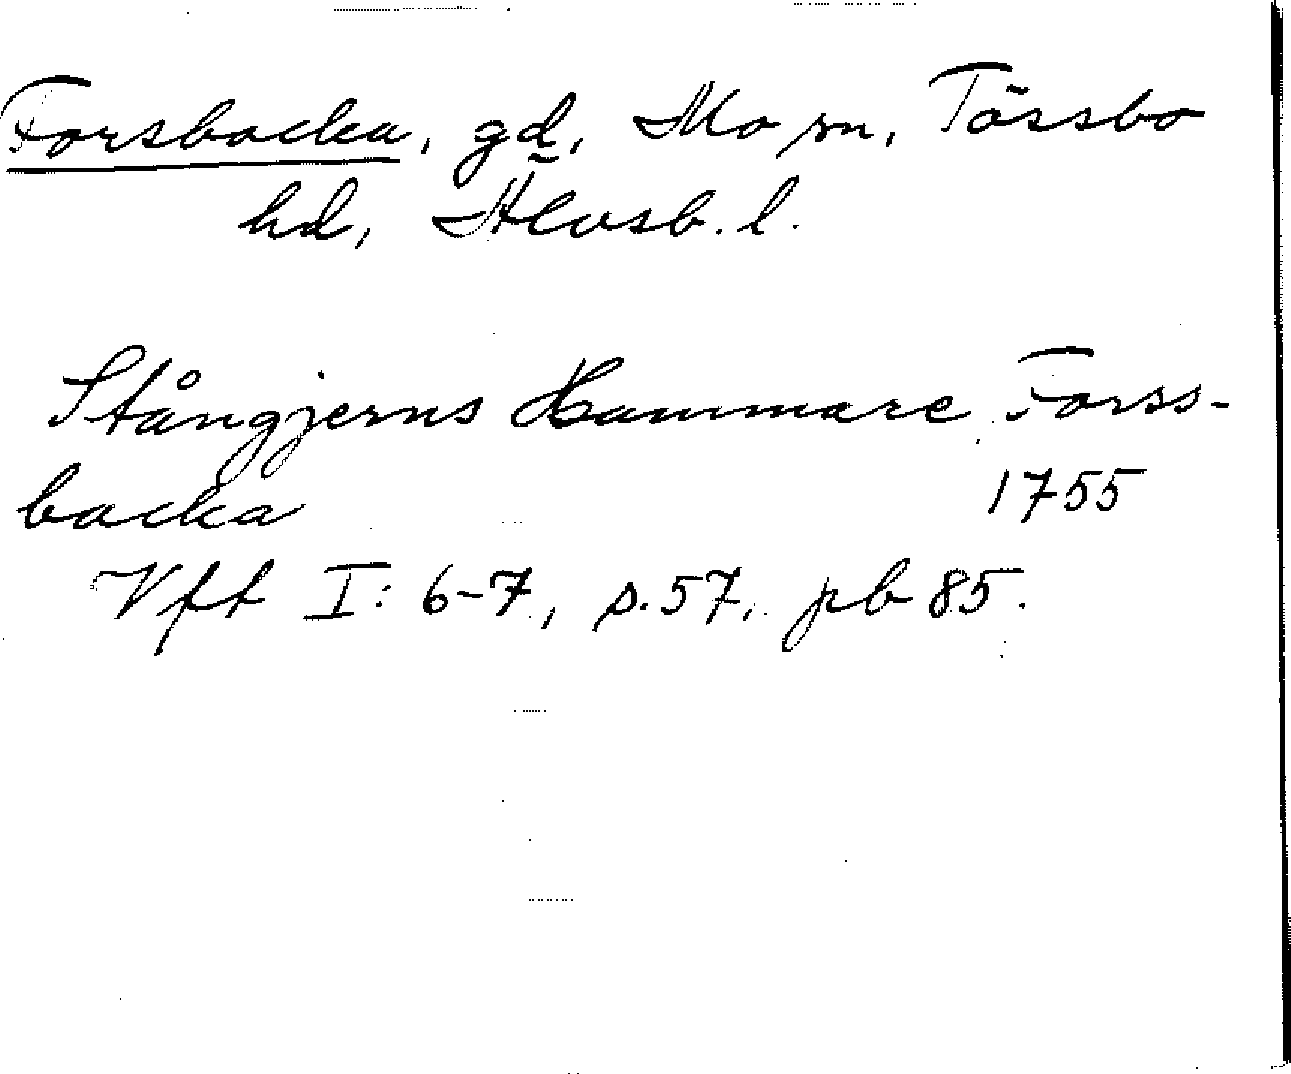 Forsbacka, gd, Mo sn, Tössbo
hd, Älvsb. l.
Stångjerns Hammare, Forss-
backa 1755
Vft I: 6-7, s. 57, pb 85.